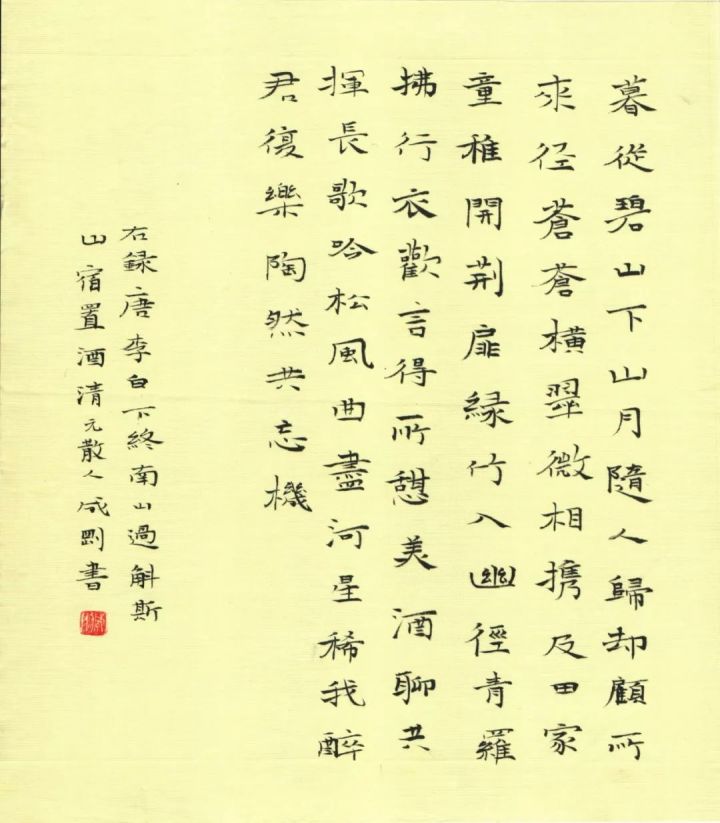 暮從碧山下山月隨人歸却顧所
來径蒼蒼橫翠微相携及田家
童稚開荆扉緑竹入幽徑青羅
拂行衣歡言得所憩美酒聊共
揮長歌吟松風曲盡河星稀我醉
君復樂陶然共忘機
右録唐李白下終南山過斛斯
山宿置酒清元散人成剛書